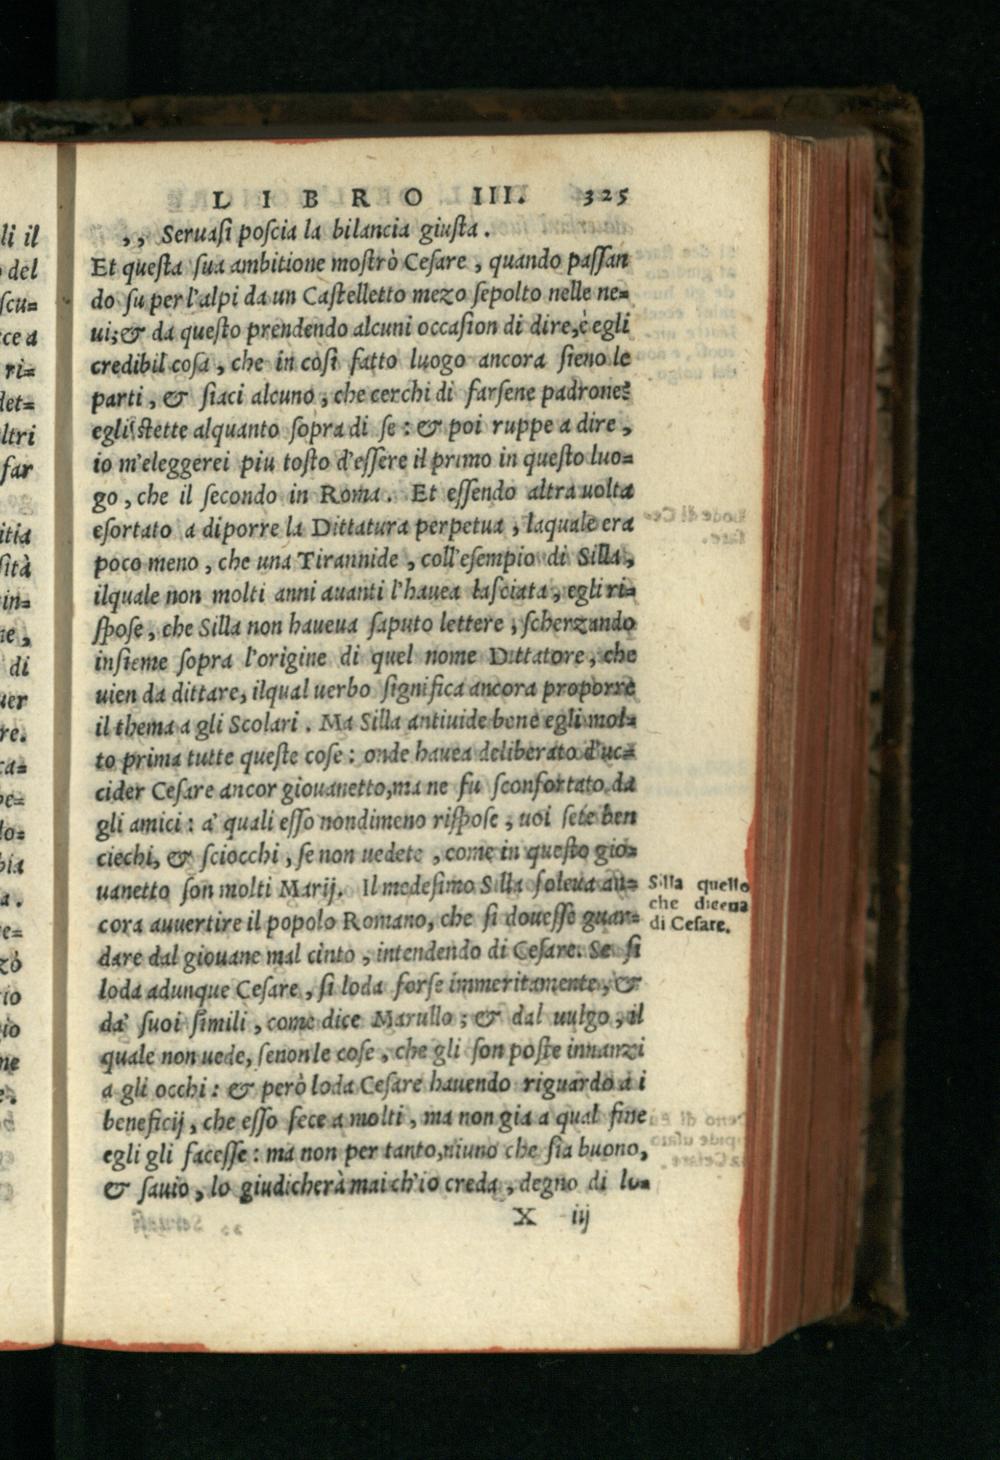 LIBRO IIII. 325
,, Seruasi poscia la bilancia giusta.
Et questa sua ambitione mostrò Cesare, quando passan
do su per l'alpi da un Castelletto mezo sepolto nelle ne=
ui; & da questo prendendo alcuni occasion di dire, è egli
credibil cosa, che in così fatto luogo ancora sieno le
parti, & siaci alcuno, che cerchi di farsene padrone?
egli stette alquanto sopra di se: & poi ruppe a dire,
io m'eleggerei piu tosto d'essere il primo in questo luo=
go, che il secondo in Roma. Et essendo altra uolta
esortato a diporre la Dittatura perpetua, laquale era
poco meno, che una Tirannide, coll'esempio di Silla,
ilquale non molti anni auanti l'hauea lasciata, egli ri=
spose, che Silla non haueua saputo lettere, scherzando
insieme sopra l'origine di quel nome Dittatore, che
uien da dittare, ilqual uerbo significa ancora proporre
il thema a gli Scolari. Ma Silla antiuide bene egli mol=
to prima tutte queste cose: onde hauea deliberato d'uc=
cider Cesare ancor giouanetto, ma ne fu sconfortato da
gli amici: a' quali esso nondimeno rispose, uoi sete ben
ciechi, & sciocchi, se non uedete, come in questo gio=
uanetto son molti Marij. Il medesimo Silla soleua an=
cora auuertire il popolo Romano, che si douesse guar=
dare dal giouane mal cinto, intendendo di Cesare. Se si
loda adunque Cesare, si loda forse immeritamente, &
da' suoi simili, come dice Marullo; & dal uulgo, il
quale non uede, senon le cose, che gli son poste innanzi
a gli occhi: & però loda Cesare hauendo riguardo a i
beneficij, che esso fece a molti, ma non gia a qual fine
egli gli facesse: ma non per tanto, niuno che sia buono,
& sauio, lo giudicherà mai ch'io creda, degno di lo=
X iij
Silla quello
che diceua
di Cesare.
li il
del
scu=
ce a
ri=
det=
ltri
far
itia
sità
in=
ne,
di
uer
re.
ca=
pe=
lo=
bia
a.
e=
zò
io
io
ne
e.